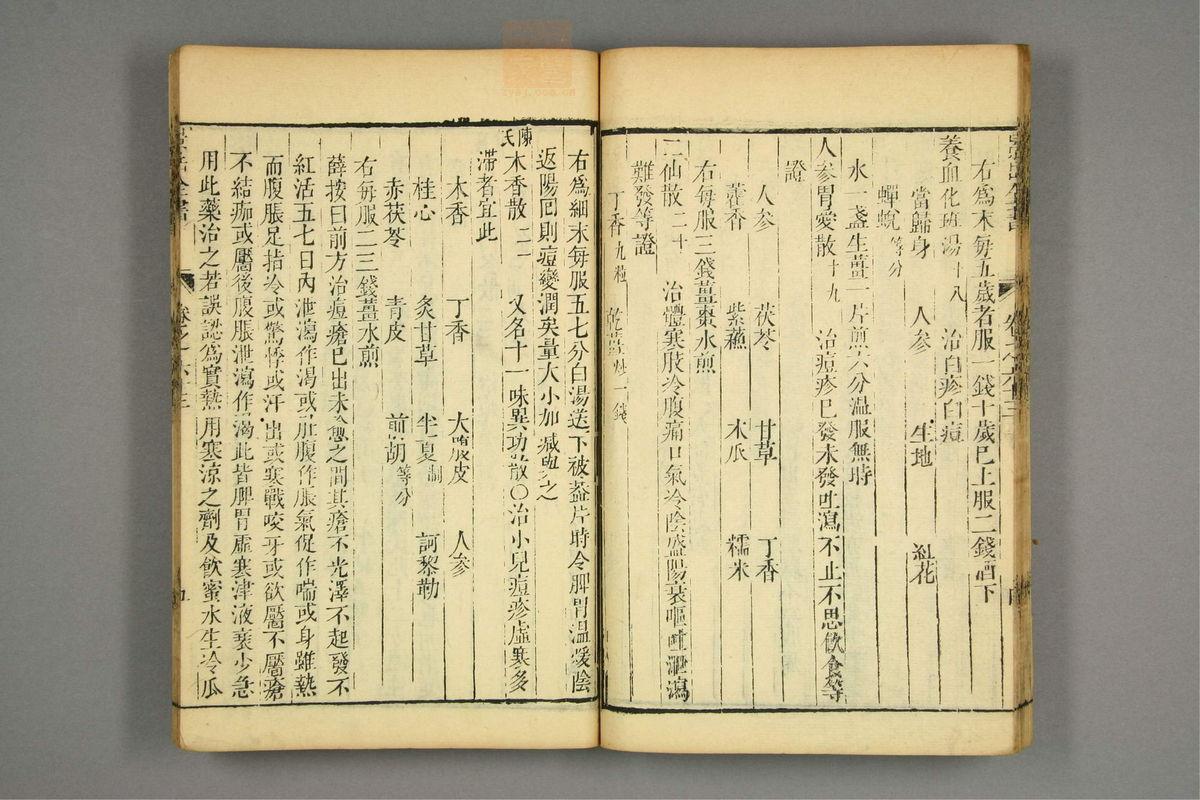 右爲末每五歲者服一錢十歲已上服二錢酒下
養血化斑湯十八 治白疹白痘
當歸身 人參 生地 紅花
蟬蛻等分
水一盞生薑一片煎六分温服無時
人參胃愛散十九 治痘疹已發未發吐瀉不止不思飲食等
證
人參 茯苓 甘草 丁香
藿香 紫蘇 木瓜 糯米
右每服三錢薑棗水煎
二仙散二十 治體寒肢冷腹痛口氣冷陰盛陽衰嘔吐泄瀉
難發等證
丁香九粒 乾薑炮一錢
右爲細末每服五七分白湯送下被蓋片時令脾胃温煖陰
返陽回則痘變潤矣量大小加減與之
陳氏木香散二一 又名十一味異功散〇治小兒痘疹虛寒多
滯者宜此
木香 丁香 大腹皮 人參
桂心 炙甘草 半夏制 訶黎勒
赤茯苓 青皮 前胡等分
右每服二三錢薑水煎
薛按曰前方治痘瘡已出未愈之間其瘡不光澤不起發不
紅活五七日內泄瀉作渴或肚腹作脹氣促作喘或身雖熱
而腹脹足指冷或驚悸或汗出或寒戰咬牙或欲靨不靨瘡
不結痂或靨後腹脹泄瀉作渴此皆脾胃虛寒津液衰少急
用此藥治之若誤認爲實熱用寒涼之劑及飲蜜水生冷瓜
景岳全書 卷之六十三